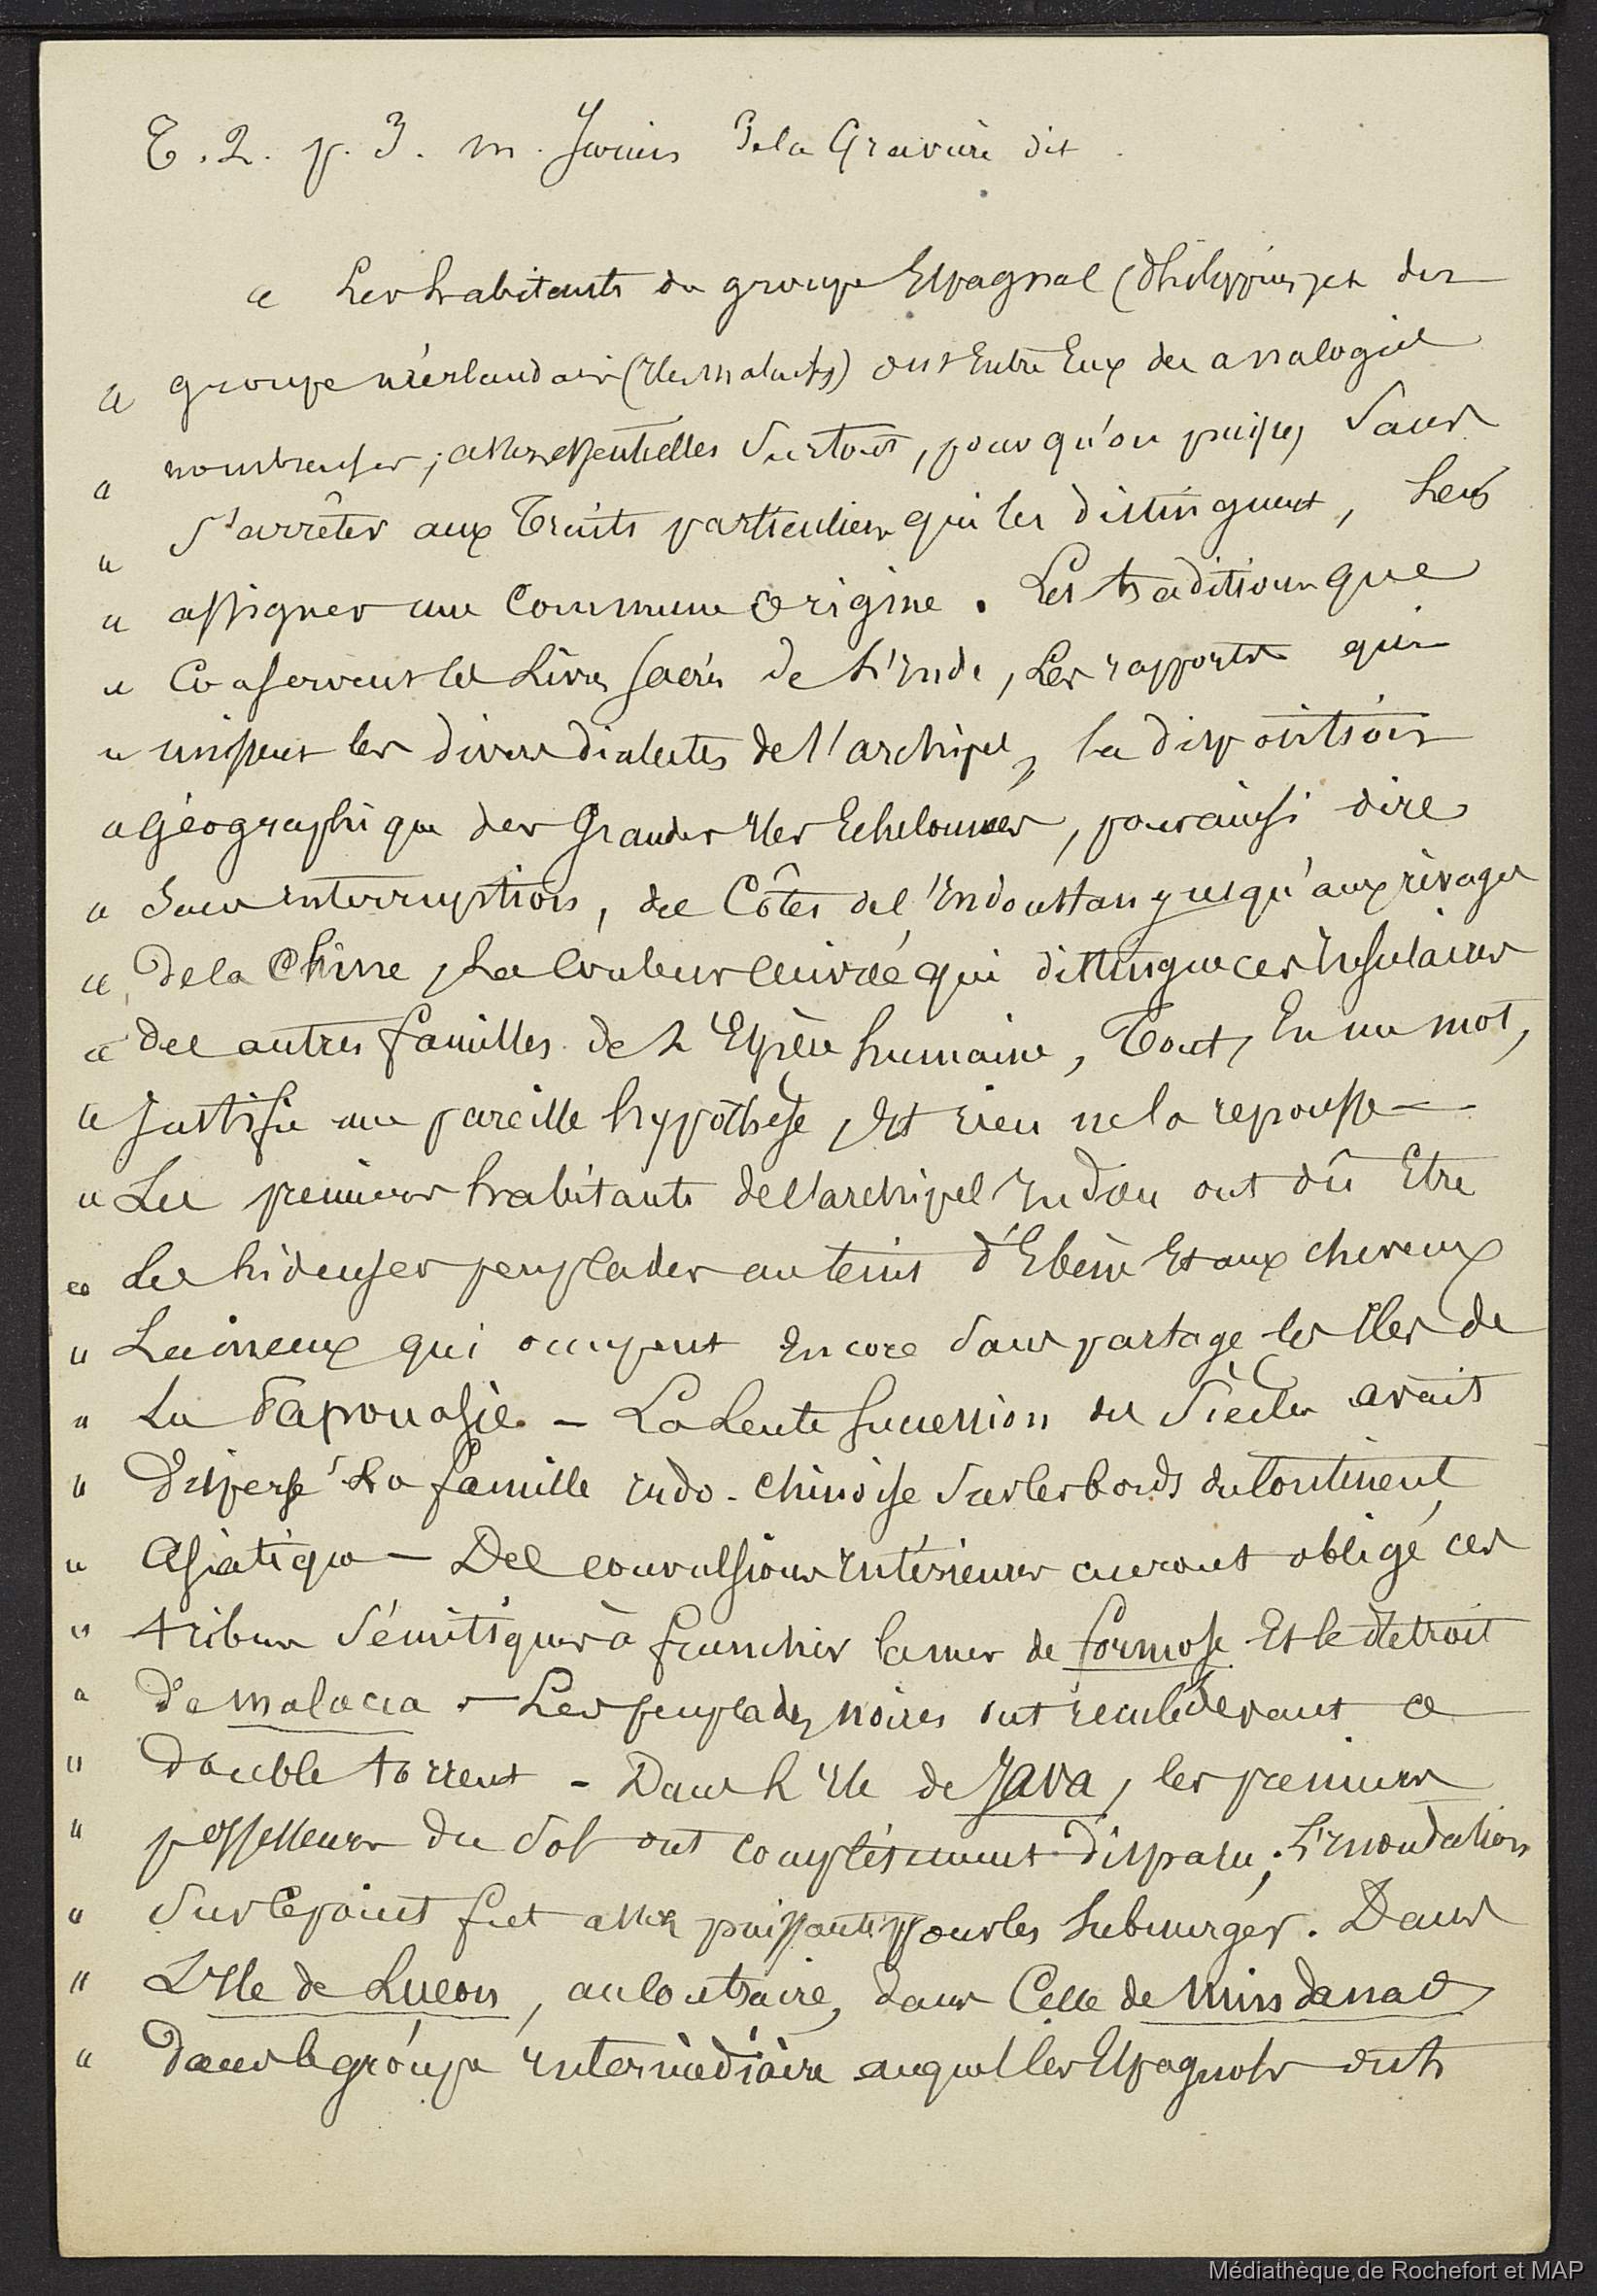 T. 2. p. 3. m. Jurien De la Gravière dit.
" Les habitants du groupe Espagnol (Philippines) et du
" groupe néerlandais (Iles Moluques) ont Entre Eux des analogies
" nombreuses, assez essentielles surtout, pour qu'on puisse, sans
" s'arrêter aux Traits particuliers qui les distinguent, leur
" assigner une Commune Origine. Les traditions que
" Conservent les Livres sacrés de L'Inde, Les rapports qui
" unissent les divers dialectes de l'archipel, la disposition
" Géographique des Grandes Iles Echelonnées, pour ainsi dire
" Sans interruption, des Côtes de l'Indoustan jusqu'aux rivages
" De la Chine, La Couleur cuivrée qui distingue ces Insulaires
" des autres familles de L'Espèce humaine, Tout, En un mot,
" Justifie une pareille hypothèse, Et rien ne la repousse —
" Les premiers habitants de l'archipel Indou ont dû Etre
" Les hideuses peuplades au teint d'Ebène Et aux cheveux
" Laineux qui occupent Encore sans partage les Iles de
" La Papouasie. - La Lente succession des Siècles avait
" Dispersé La famille indo-chinoise Sur les bords du Continent
" Asiatique — Des convulsions intérieures auront obligé ces
" tribus Sémitiques à franchir la mer de formose Et le détroit
" De malacca - Les peuplades noires ont reculé devant ce
" double torrent - Dans L'Ile de Java, les premiers
" possesseurs du Sol ont complétement disparu; L'inondation
" Sur ce point fut assez puissante pour les submerger. Dans
" L'Ile de Luçon, au Contraire, dans Celle de Mindanao
" Dans le groupe intermédiaire auquel les Espagnols ont
Médiathèque de Rochefort et MAP